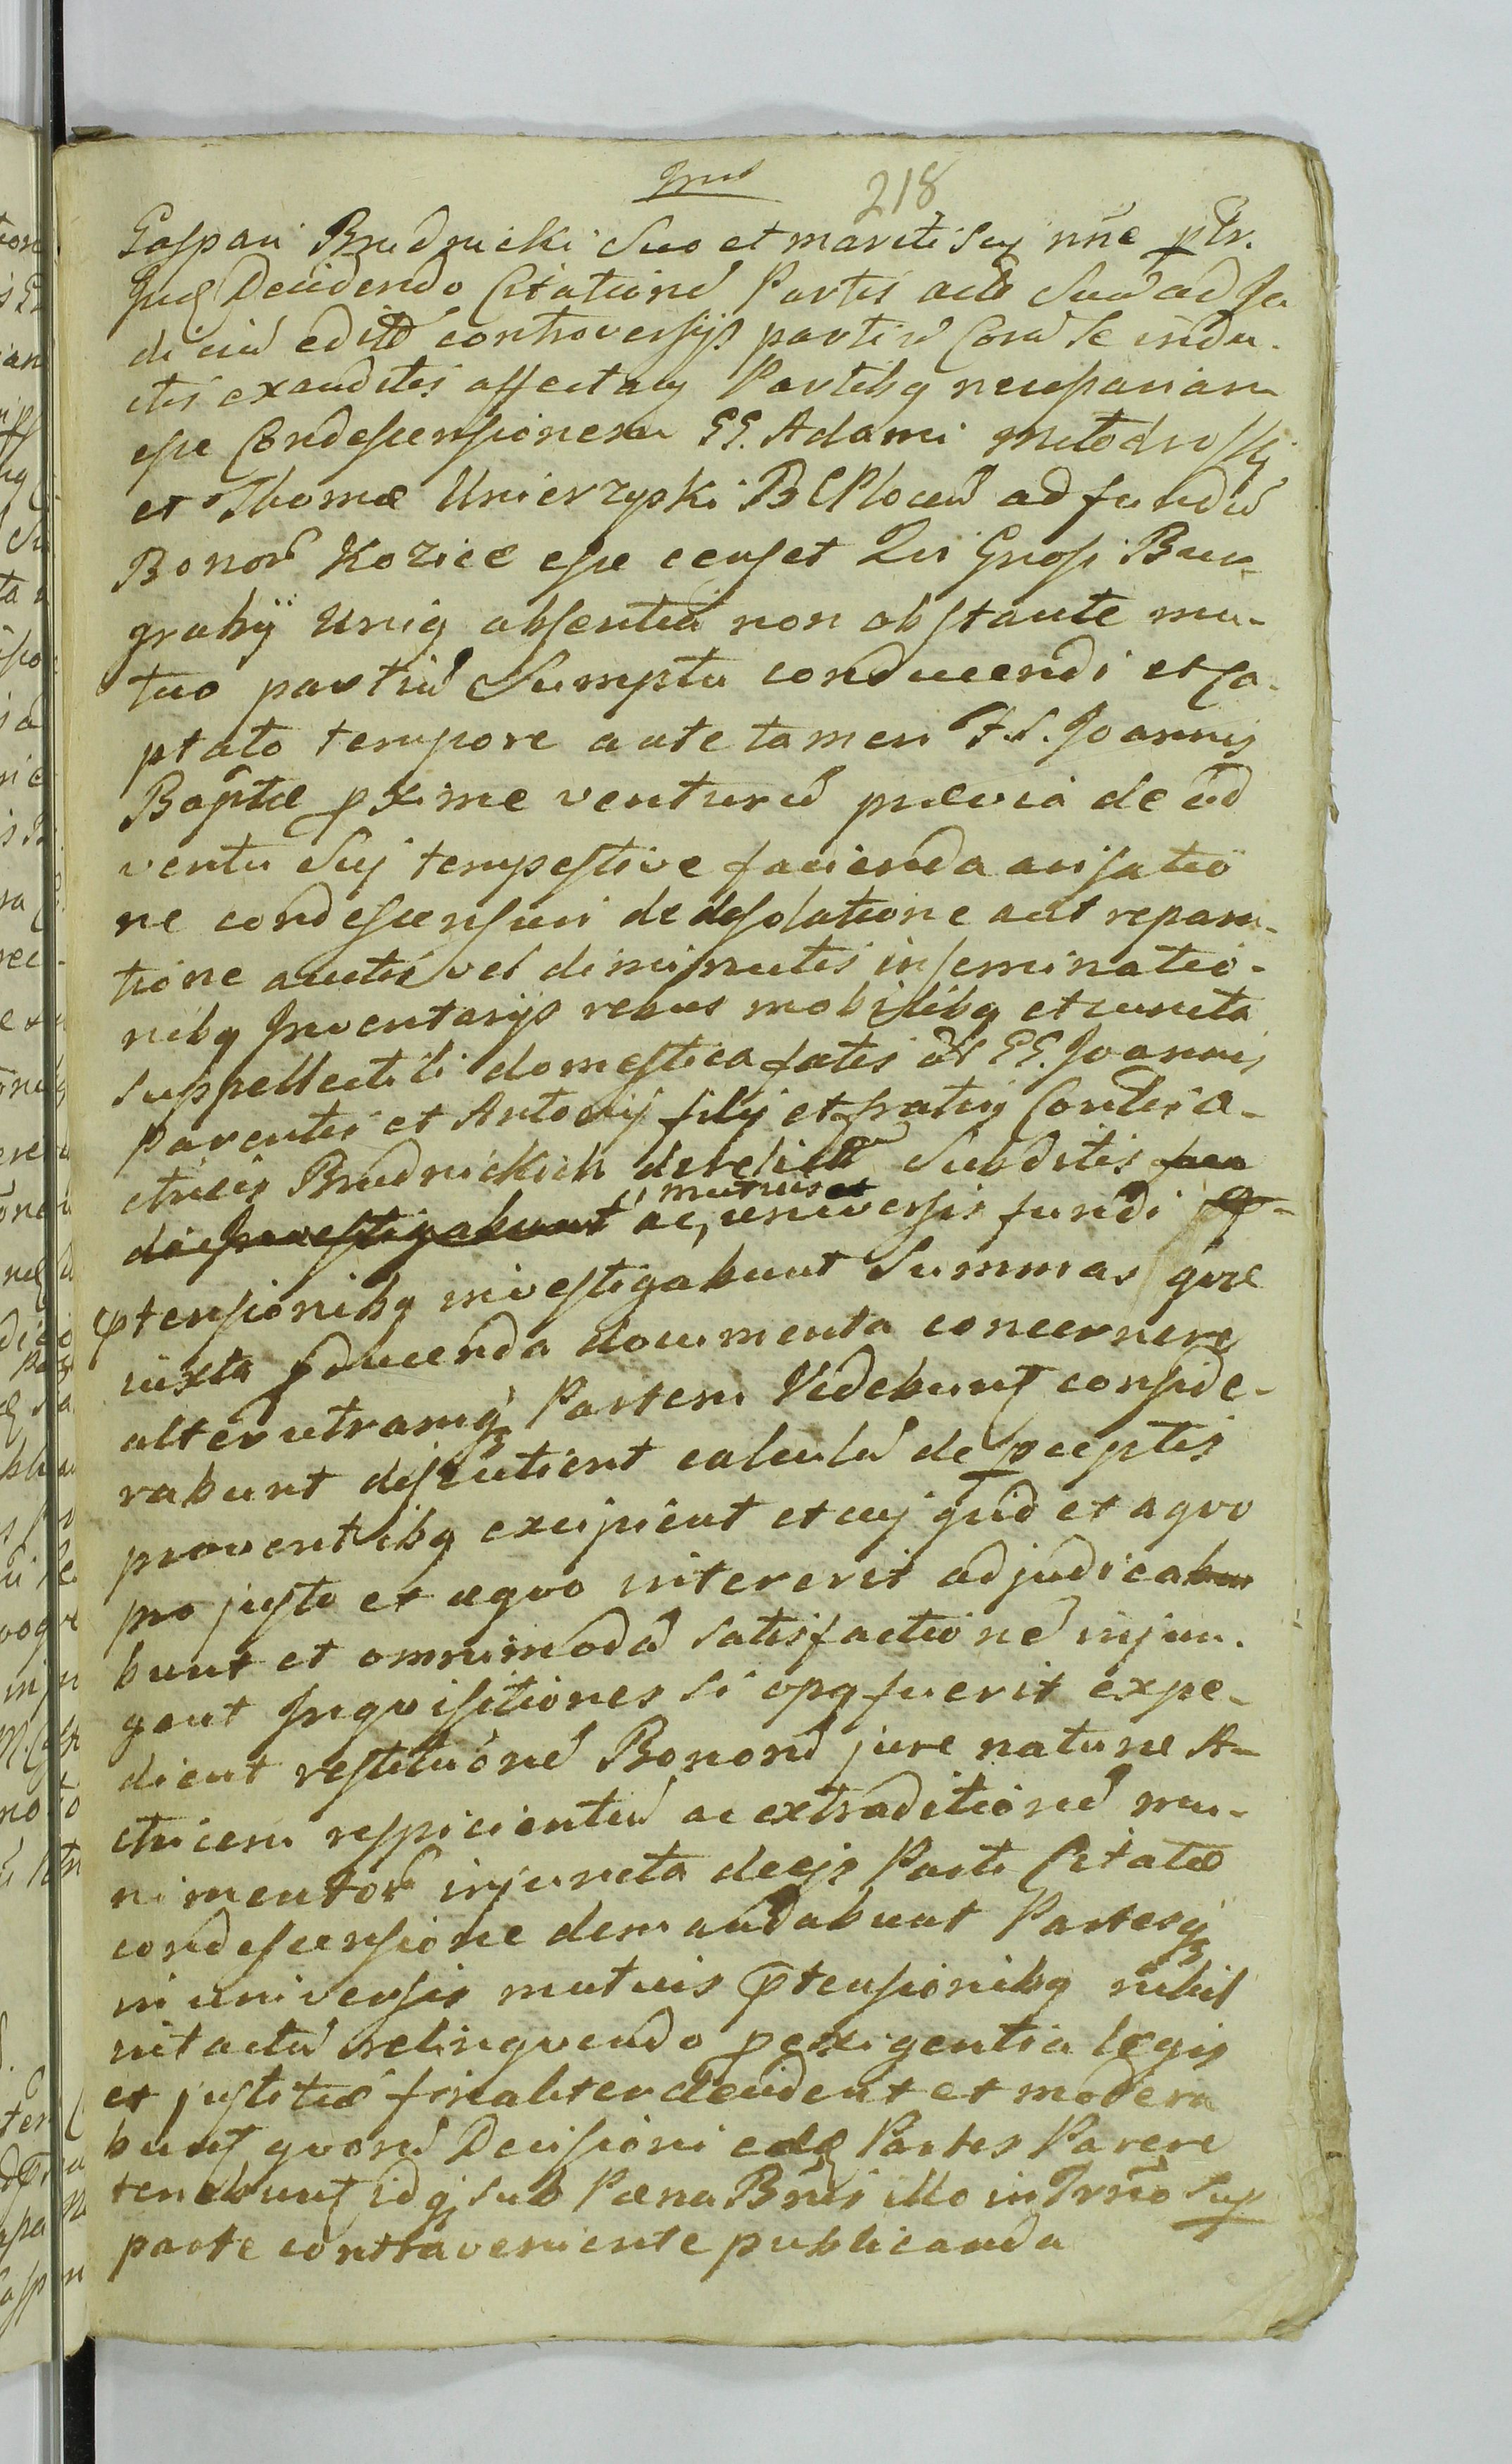 218
Gaspari Brudnicki Suo et mariti sui nñe ptr.
Decidendo Citationẽ Partis actæ Suã ad Ju
diciũ editã controversijs partiũ Corã se indu-
ctis exauditis affectatã Partibq necessariam
esse Condescensionem GG. Adami
et Thomæ Unierzyski BCPlocen̄ ad fundũ
Bonorũ Kozice esse censet Qui Gnosi Bur-
grabÿ Uniq absentiã non obstante mu-
tuo partiũ Sumptu conducendi et Ca-
ptato tempore ante tamen F. S. Joannis
Baptæ pxime venturũ prævia de ad
ventu Suj tempestive facienda avisatio
ne condescensuri de desolatione aut repara-
tione auctis vel diminutis inseminatio-
nibq Inventarijs rebus mobilibq et cuncta
suppellectili domestica fatis GG. Joannis
Parentis et Antonij filij et fratris Contra A-
ctricis Brudnickich derelicta Subditis
die Investigabunt ac, mutuis et universis fundi
ptensionibq investigabunt Summas qvæ
iuxta pducenda documenta concernere
alterutramq Partem Videbunt conside-
rabunt discutient calculũ de pceptis
proventibq excipient et cuj quid et a qvo
pro justo et æqvo intererit adjudicabun
bunt et omnimodã satisfactionẽ injun-
gent Inqvisitiones si opq fuerit expe-
dient restitucionẽ Bonorũ jure naturæ A-
ctricem respicientiũ ac extraditionẽ mu-
nimentorũ injuncta de ejs Parti Citatæ
condescensione demandabunt Partesq
in universis mutuis ptensionibq nihil
intactũ relinqvendo p exigentia legis
et justitiæ finaliter decident et modera
bunt qvorũ Decisioni eædẽ Partes Parere
tenebunt idq sub Pæna Bñis illo in Trño sup
parte contraveniente publicanda